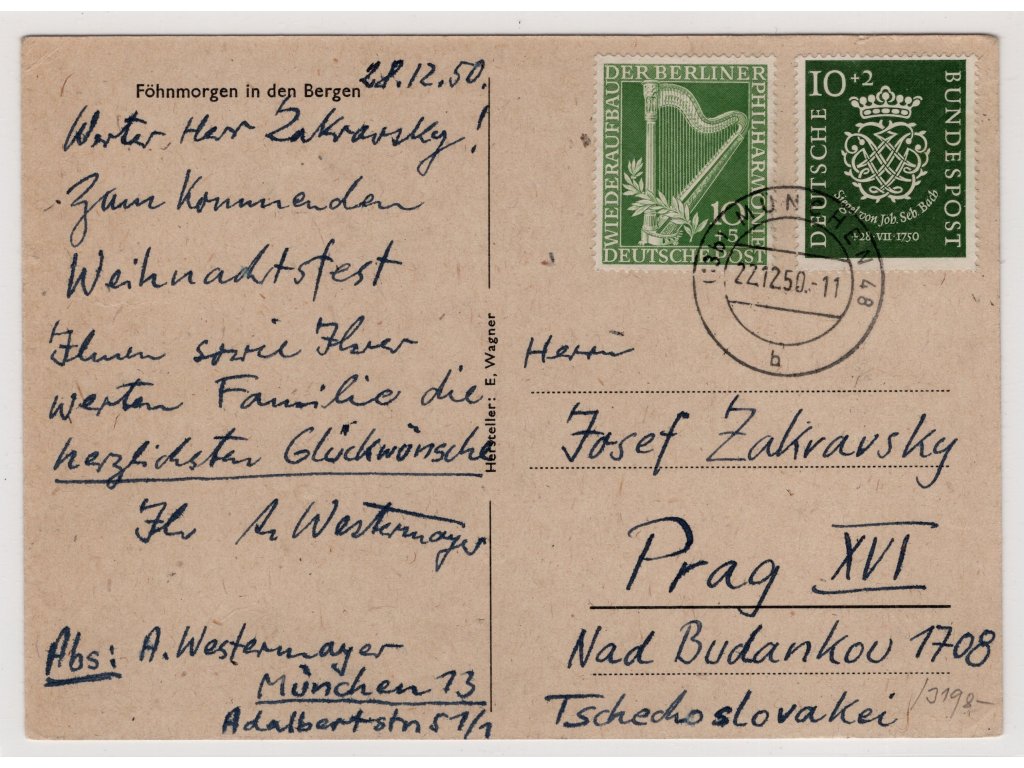 Föhnmorgen in den Bergen
28.12.50.
Werter, Herr Zakravsky!
Zum Kommenden
Weihnachtsfest
Ihnen sowie Ihrer
werten Familie die
herzlichsten Glückwünsche
Ihr A. Westermayer
Abs: A. Westermayer
München 13
Adalbertstr 51/1
Hersteller: E. Wagner
WIEDERAUFBAU DER BERLINER PHILHARMONIE
10+5
DEUTSCHE POST
10+2
DEUTSCHE BUNDESPOST
Siegel von Joh. Seb. Bach
+28·VII·1750
(13b) MÜNCHEN 48
22.12.50.-11
b
Herrn
Josef Zakravsky
Prag XVI
Nad Budankou 1708
Tschechoslovakei